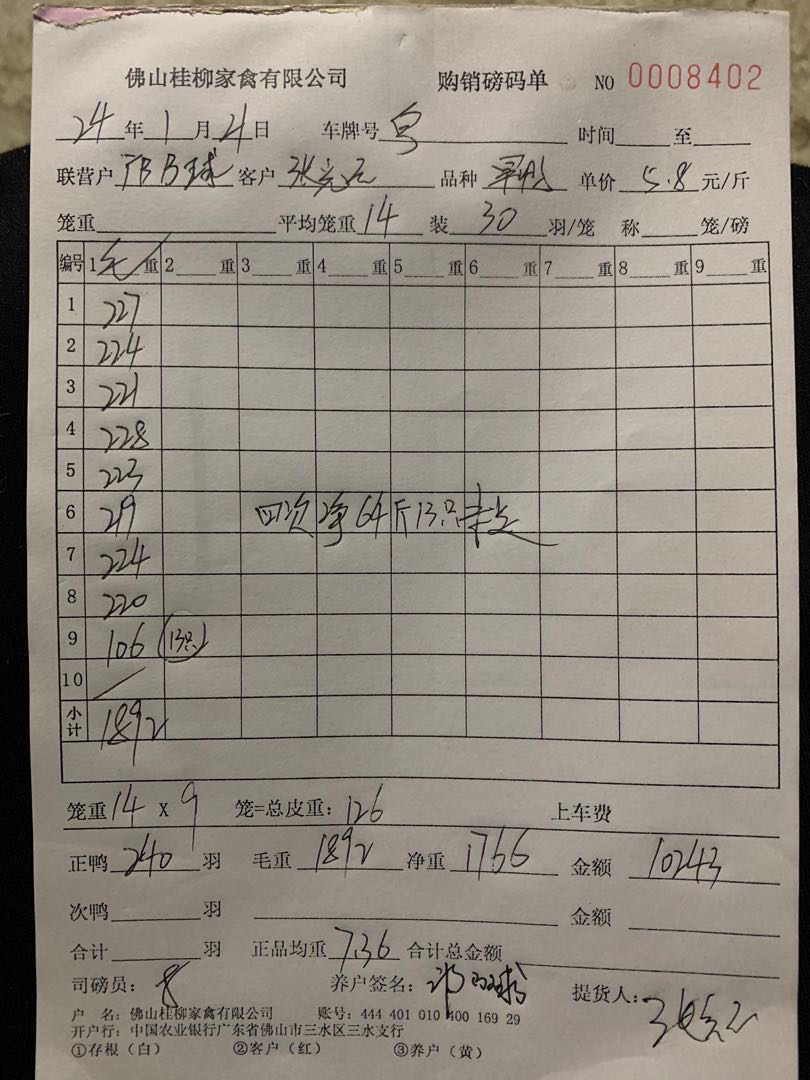 佛山桂柳家禽有限公司 购销磅码单 NO 0008402
24年1月21日 车牌号 时间____至____
联营户 客户 张亮元 品种 单价 5.8 元/斤
笼重____ 平均笼重 14 装 30 羽/笼 称____笼/磅
编号 1 毛 重 2____重 3____重 4____重 5____重 6____重 7____重 8____重 9____重
1 227
2 224
3 221
4 228
5 223
6 219 四次净64斤13只未支
7 224
8 220
9 106 13只
10 /
小计 1892
笼重 14 X 9 笼=总皮重: 126 上车费
正鸭 240 羽 毛重 1892 净重 1766 金额 10243
次鸭____羽 金额
合计____羽 正品均重 7.36 合计总金额
司磅员: 养户签名: 提货人:
户 名: 佛山桂柳家禽有限公司 账号: 444 401 010 400 169 29
开户行: 中国农业银行广东省佛山市三水区三水支行
①存根(白) ②客户(红) ③养户(黄)